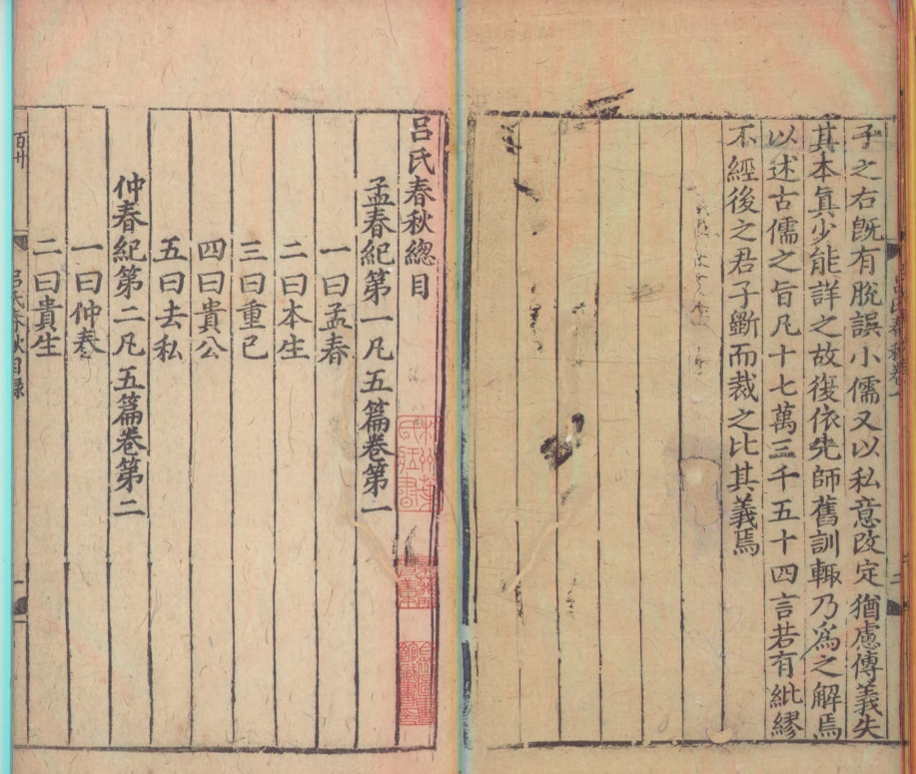 子之右旣有脫誤小儒又以私意改定猶慮傳義失
其本眞少能詳之故復依先師舊訓輒乃爲之解焉
以述古儒之旨凡十七萬三千五十四言若有紕繆
不經後之君子斷而裁之比其義焉
呂氏春秋總目
孟春紀第一凡五篇卷第一
一曰孟春
二曰本生
三曰重己
四曰貴公
五曰去私
仲春紀第二凡五篇卷第二
一曰仲春
二曰貴生
呂氏春秋目錄